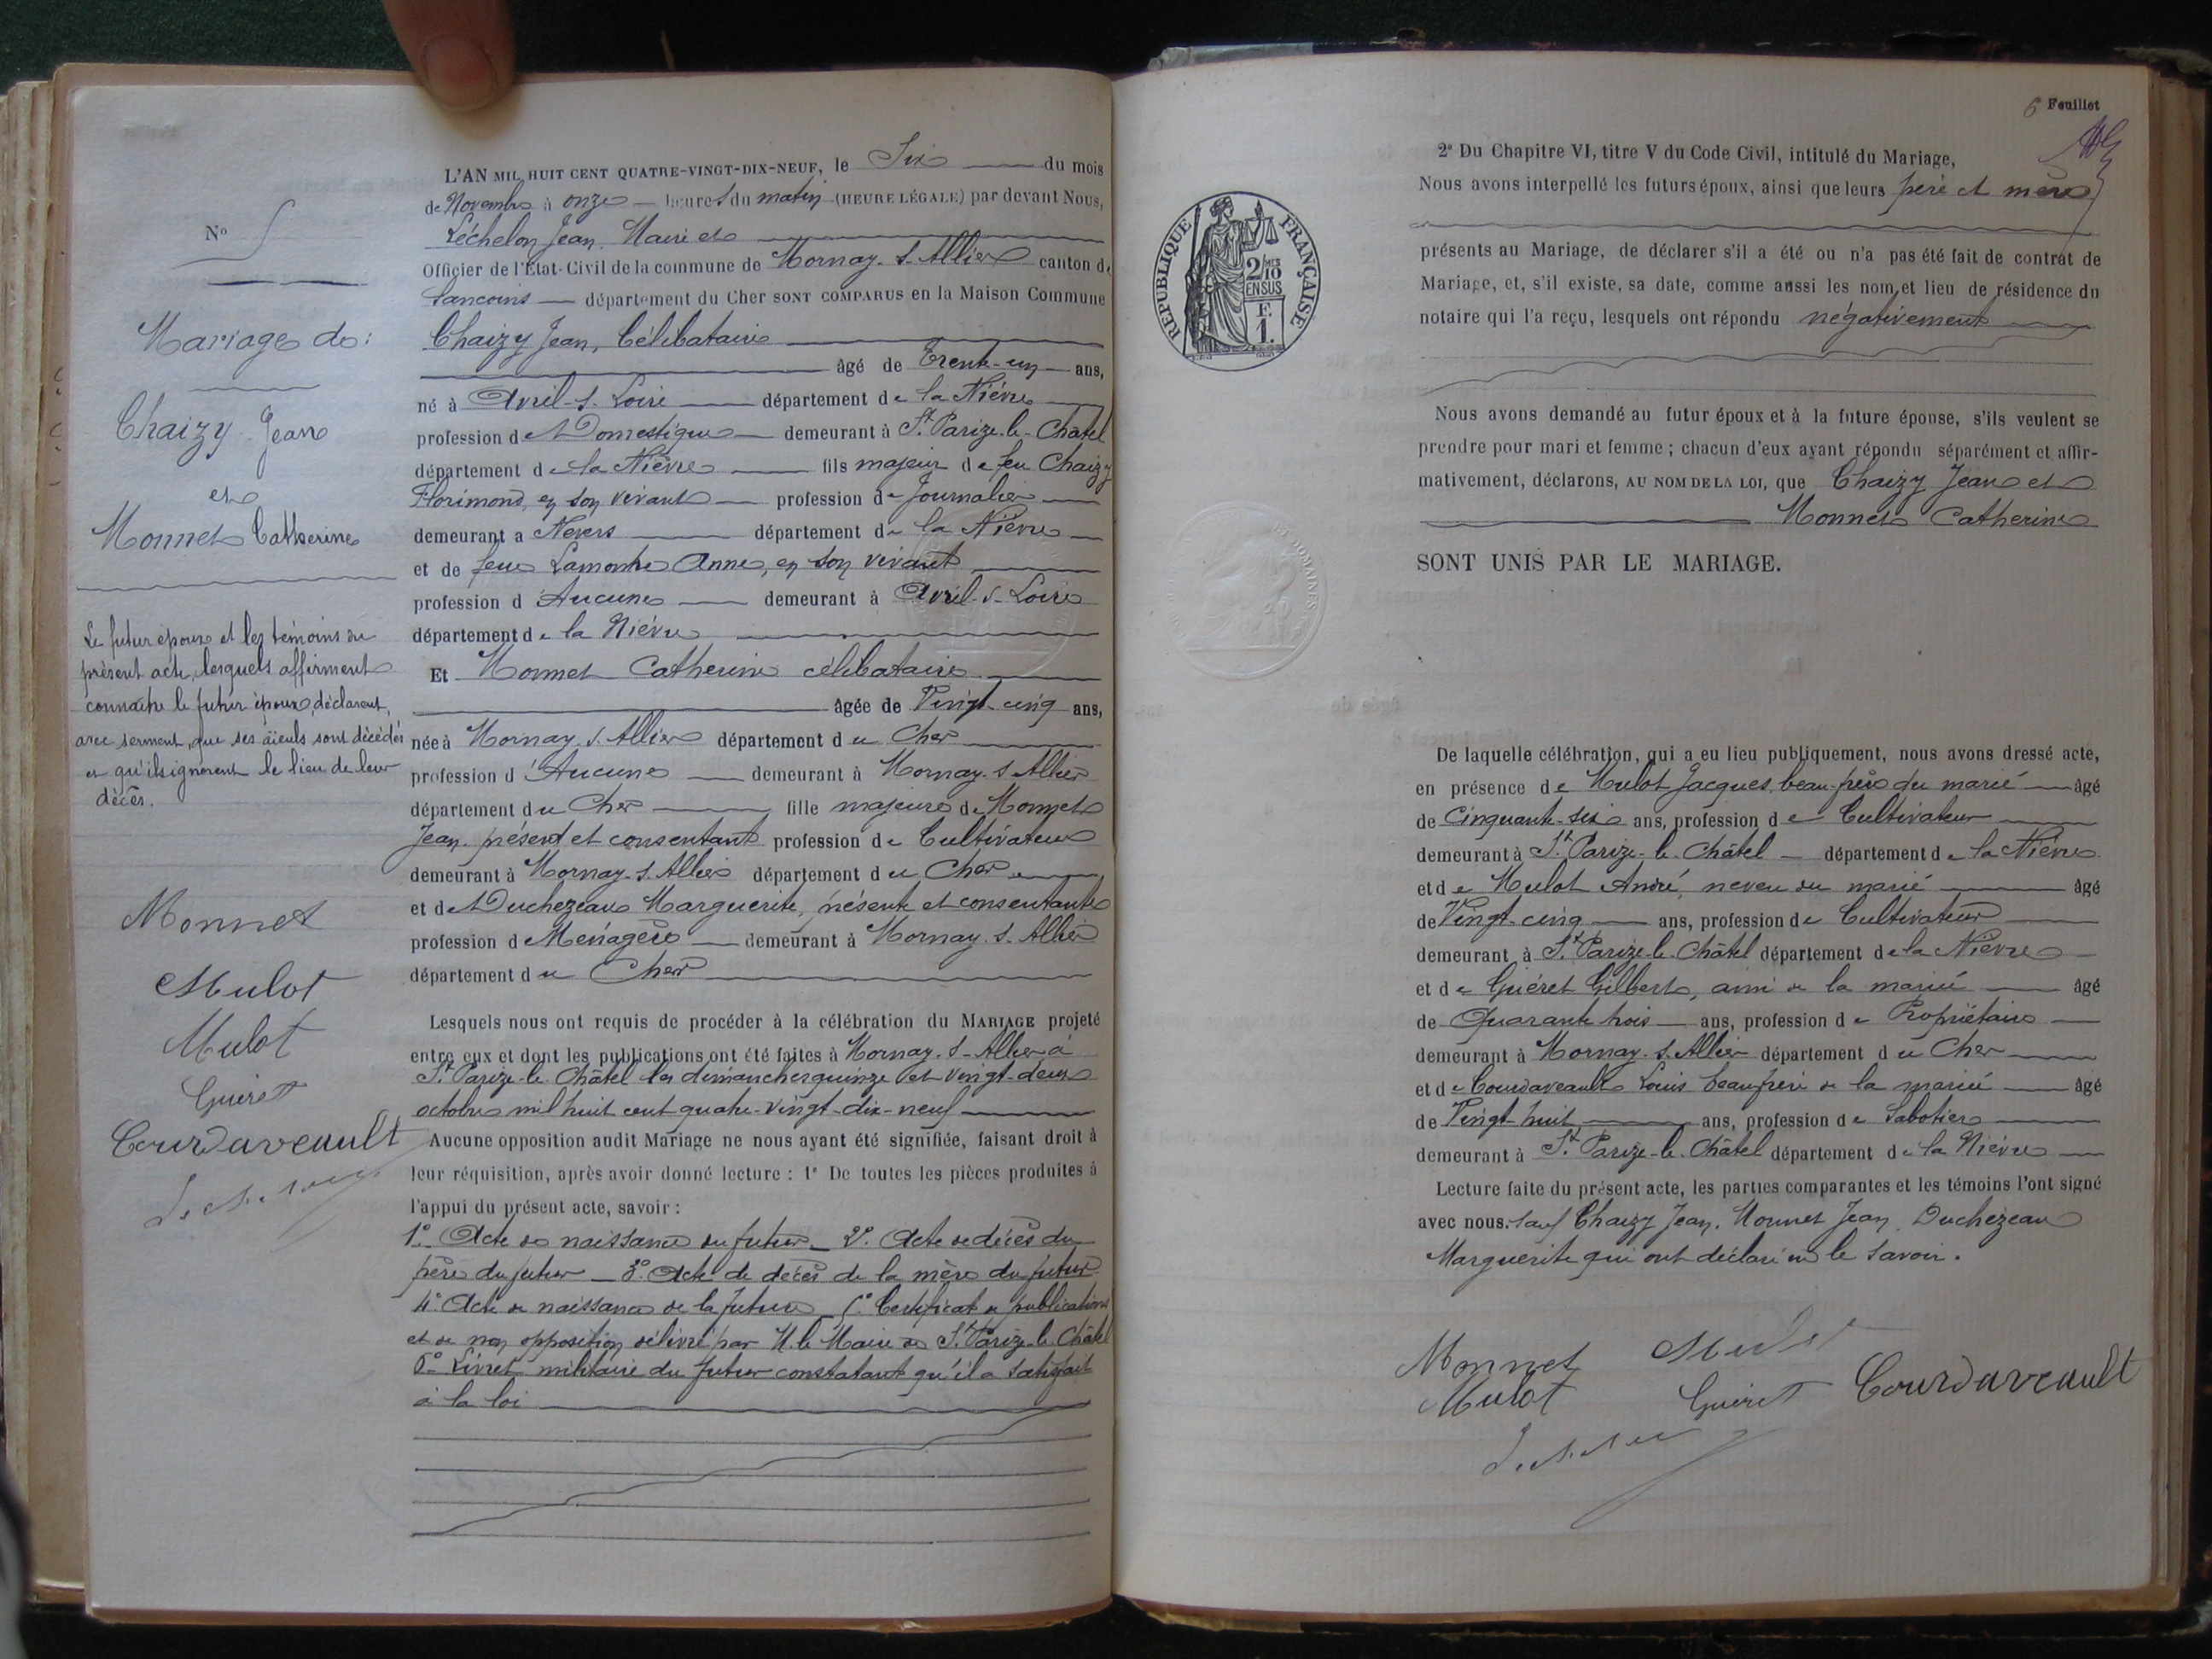 N° 5
Mariage de :
Chaizy Jean
et
Monnet Catherine
Le futur époux et les témoins du
présent acte, lesquels affirment
connaître le futur époux, déclarent,
avec serment, que ses aïeuls sont décédés
et qu'ils ignorent le lieu de leur
décès.
Monnet
Mulot
Mulot
Guéret
Courdaveault
L'AN MIL HUIT CENT QUATRE-VINGT-DIX-NEUF, le Six du mois
de Novembre à onze heures du matin (HEURE LÉGALE) par devant Nous,
Léchelon Jean, Maire et
Officier de l'État-Civil de la commune de Mornay-s-Allier canton de
Sancoins département du Cher SONT COMPARUS en la Maison Commune
Chaizy Jean, Célibataire
âgé de Trente-un ans,
né à Avril-s-Loire département de la Nièvre
profession de Domestique demeurant à St Parize-le-Châtel
département de la Nièvre fils majeur de feu Chaizy
Florimond, en son vivant profession de Journalier
demeurant à Nevers département de la Nièvre
et de feue Lamontre Anne, en son vivant
profession d'Aucune demeurant à Avril-s-Loire
département de la Nièvre
Et Monnet Catherine célibataire
âgée de Vingt-cinq ans,
née à Mornay-s-Allier département du Cher
profession d'Aucune demeurant à Mornay-s-Allier
département du Cher fille majeure de Monnet
Jean, présent et consentant profession de Cultivateur
demeurant à Mornay-s-Allier département du Cher
et de Duchezeau Marguerite, présente et consentante
profession de Ménagère demeurant à Mornay-s-Allier
département du Cher
Lesquels nous ont requis de procéder à la célébration du MARIAGE projeté
entre eux et dont les publications ont été faites à Mornay-s-Allier à
St Parize-le-Châtel les dimanches quinze et vingt-deux
octobre mil huit cent quatre-vingt-dix-neuf
Aucune opposition audit Mariage ne nous ayant été signifiée, faisant droit à
leur réquisition, après avoir donné lecture : 1° De toutes les pièces produites à
l'appui du présent acte, savoir :
1° Acte de naissance du futur - 2° Acte de décès du
père du futur - 3° Acte de décès de la mère du futur
4° Acte de naissance de la future - 5° Certificat de publications
et de non opposition délivré par M. le Maire de St Parize-le-Châtel
6° Livret militaire du futur constatant qu'il a satisfait
à la loi
6 Feuillet
RÉPUBLIQUE FRANÇAISE
2/10 MES
EN SUS
F.
1.
2° Du Chapitre VI, titre V du Code Civil, intitulé du Mariage,
Nous avons interpellé les futurs époux, ainsi que leurs père et mère
présents au Mariage, de déclarer s'il a été ou n'a pas été fait de contrat de
Mariage, et, s'il existe, sa date, comme aussi les nom et lieu de résidence du
notaire qui l'a reçu, lesquels ont répondu négativement
Nous avons demandé au futur époux et à la future épouse, s'ils veulent se
prendre pour mari et femme ; chacun d'eux ayant répondu séparément et affir-
mativement, déclarons, AU NOM DE LA LOI, que Chaizy Jean et
Monnet Catherine
SONT UNIS PAR LE MARIAGE.
De laquelle célébration, qui a eu lieu publiquement, nous avons dressé acte,
en présence de Mulot Jacques, beau-frère du marié âgé
de Cinquante-six ans, profession de Cultivateur
demeurant à St Parize-le-Châtel département de la Nièvre
et de Mulot André, neveu du marié âgé
de Vingt-cinq ans, profession de Cultivateur
demeurant à St Parize-le-Châtel département de la Nièvre
et de Guéret Gilbert, ami de la mariée âgé
de Quarante trois ans, profession de Propriétaire
demeurant à Mornay-s-Allier département du Cher
et de Courdaveault Louis beau-frère de la mariée âgé
de Vingt huit ans, profession de Sabotier
demeurant à St Parize-le-Châtel département de la Nièvre
Lecture faite du présent acte, les parties comparantes et les témoins l'ont signé
avec nous. sauf Chaizy Jean, Monnet Jean, Duchezeau
Marguerite qui ont déclaré ne le savoir.
Monnet Mulot
Mulot Guéret Courdaveault